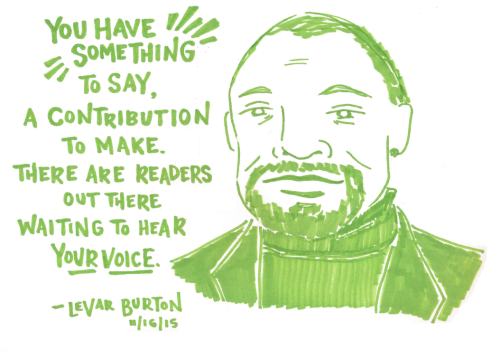 YOU HAVE
SOMETHING
TO SAY,
A CONTRIBUTION
TO MAKE.
THERE ARE READERS
OUT THERE
WAITING TO HEAR
YOUR VOICE.
- LEVAR BURTON
11/16/15